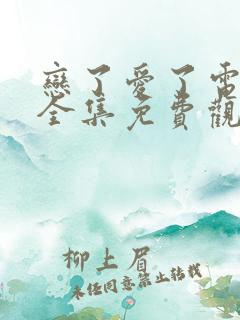 戀了愛了電
全集免費觀
柳上眉
未經同意禁止轉載